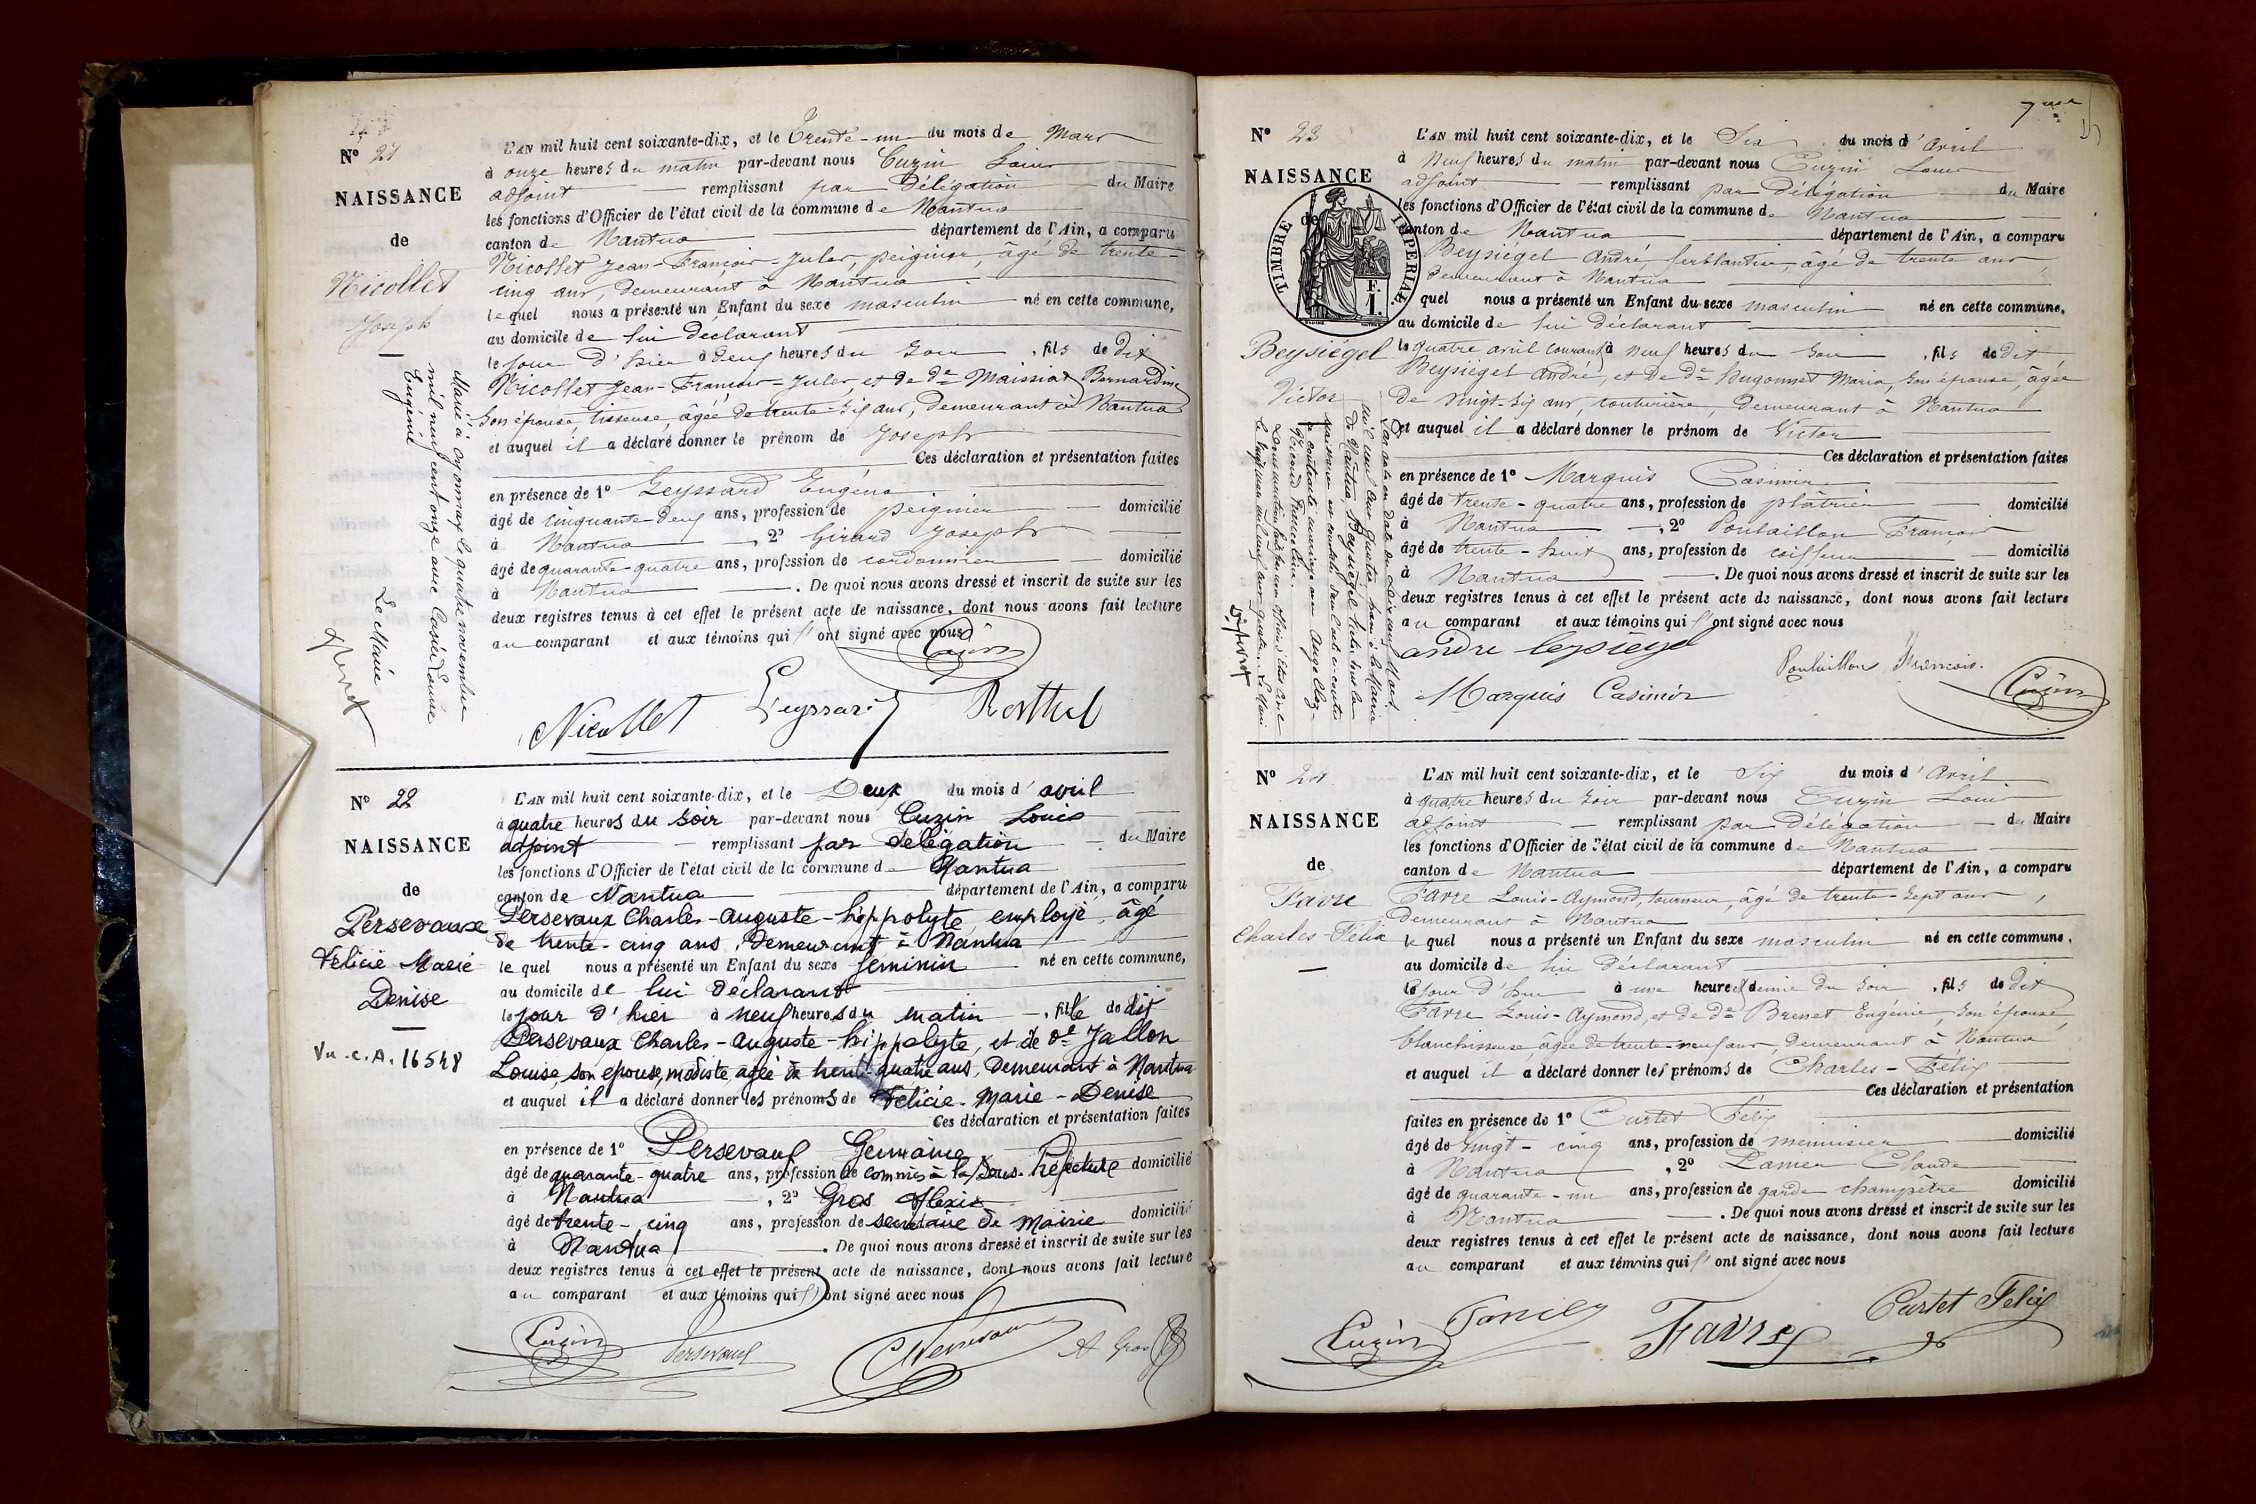 N° 21
NAISSANCE
de
Nicollet
Joseph
L'AN mil huit cent soixante-dix, et le Trente-un du mois de Mars
à onze heures du matin par-devant nous Cuzin Louis
adjoint remplissant par Délégation du Maire
les fonctions d'Officier de l'état civil de la commune de Nantua
canton de Nantua département de l'Ain, a comparu
Nicollet Jean-François-Jules, peignier, âgé de trente-
cinq ans, demeurant à Nantua
lequel nous a présenté un Enfant du sexe masculin né en cette commune,
au domicile de lui déclarant
le jour d'hier à Deux heures du soir, fils de dit
Nicollet Jean-François-Jules, et de De Maissiat Bernardine
son épouse, tisseuse, âgée de trente-six ans, demeurant à Nantua
et auquel il a déclaré donner le prénom de Joseph
Ces déclaration et présentation faites
en présence de 1° Geyssard Eugène
âgé de cinquante-deux ans, profession de peignier domicilié
à Nantua, 2° Girard Joseph
âgé de quarante-quatre ans, profession de cordonnier domicilié
à Nantua. De quoi nous avons dressé et inscrit de suite sur les
deux registres tenus à cet effet le présent acte de naissance, dont nous avons fait lecture
au comparant et aux témoins qui l'ont signé avec nous
Cuzin
Nicollet Geyssard
Marié à Oyonnax le quatre novembre
mil neuf cent onze avec Louise
Eugénie
Le Maire
N° 22
NAISSANCE
de
Persevaux
Félicie Marie
Denise
Vu. C.A. 16548
L'AN mil huit cent soixante-dix, et le Deux du mois d'avril
à quatre heures du soir par-devant nous Cuzin Louis
adjoint remplissant par délégation du Maire
les fonctions d'Officier de l'état civil de la commune de Nantua
canton de Nantua département de l'Ain, a comparu
Persevaux Charles-auguste-hippolyte employé, âgé
de trente-cinq ans, Demeurant à Nantua
le quel nous a présenté un Enfant du sexe féminin né en cette commune,
au domicile de lui Déclarant
le jour d'hier à neuf heures du matin, fille de dit
Persevaux Charles-auguste-hippolyte, et de De Jallon
Louise, son épouse, modiste, agée de trente-quatre ans, Demeurant à Nantua
et auquel il a déclaré donner les prénoms de Félicie-Marie-Denise
Ces déclaration et présentation faites
en présence de 1° Persevaux Germain
âgé de quarante-quatre ans, profession de commis à la Sous-Préfecture domicilié
à Nantua, 2° Gros Alexis
âgé de trente-cinq ans, profession de secrétaire de Mairie domicilié
à Nantua. De quoi nous avons dressé et inscrit de suite sur les
deux registres tenus à cet effet le présent acte de naissance, dont nous avons fait lecture
au comparant et aux témoins qui l'ont signé avec nous
Cuzin Persevaux A Gros
7me
N° 23
NAISSANCE
de
TIMBRE IMPERIAL
F.
1.
Beysiégel
Victor
L'AN mil huit cent soixante-dix, et le Six du mois d'Avril
à Neuf heures du matin par-devant nous Cuzin Louis
adjoint remplissant par Délégation du Maire
les fonctions d'Officier de l'état civil de la commune de Nantua
canton de Nantua département de l'Ain, a comparu
Beysiégel André, ferblantier, âgé de trente ans
Demeurant à Nantua
le quel nous a présenté un Enfant du sexe masculin né en cette commune,
au domicile de lui déclarant
le quatre avril courant à neuf heures du soir, fils de dit
Beysiégel André, et de De Hugonnet Maria, son épouse, âgée
de vingt-six ans, couturière, demeurant à Nantua
et auquel il a déclaré donner le prénom de Victor
Ces déclaration et présentation faites
en présence de 1° Marquis Casimir
âgé de trente-quatre ans, profession de plâtrier domicilié
à Nantua, 2° Poulaillon François
âgé de trente-huit ans, profession de coiffeur domicilié
à Nantua. De quoi nous avons dressé et inscrit de suite sur les
deux registres tenus à cet effet le présent acte de naissance, dont nous avons fait lecture
au comparant et aux témoins qui l'ont signé avec nous
Poulaillon François.
Marquis Casimir Cuzin
N° 24
NAISSANCE
de
Favre
Charles-Félix
L'AN mil huit cent soixante-dix, et le Six du mois d'Avril
à quatre heures du soir par-devant nous Cuzin Louis
adjoint remplissant par Délégation du Maire
les fonctions d'Officier de l'état civil de la commune de Nantua
canton de Nantua département de l'Ain, a comparu
Favre Louis-Aymond, tourneur, âgé de trente-sept ans,
Demeurant à Nantua
le quel nous a présenté un Enfant du sexe masculin né en cette commune,
au domicile de lui déclarant
le jour d'hier à une heure et demie du soir, fils de dit
Favre Louis-Aymond, et de De Brenet Eugénie, son épouse,
blanchisseuse, âgée de trente-neuf ans, Demeurant à Nantua
et auquel il a déclaré donner les prénoms de Charles-Félix
Ces déclaration et présentation
faites en présence de 1° Curtet Félix
âgé de vingt-cinq ans, profession de menuisier domicilié
à Nantua, 2° Claude
âgé de quarante-un ans, profession de garde champêtre domicilié
à Nantua. De quoi nous avons dressé et inscrit de suite sur les
deux registres tenus à cet effet le présent acte de naissance, dont nous avons fait lecture
au comparant et aux témoins qui l'ont signé avec nous
Cuzin Favre Curtet Félix